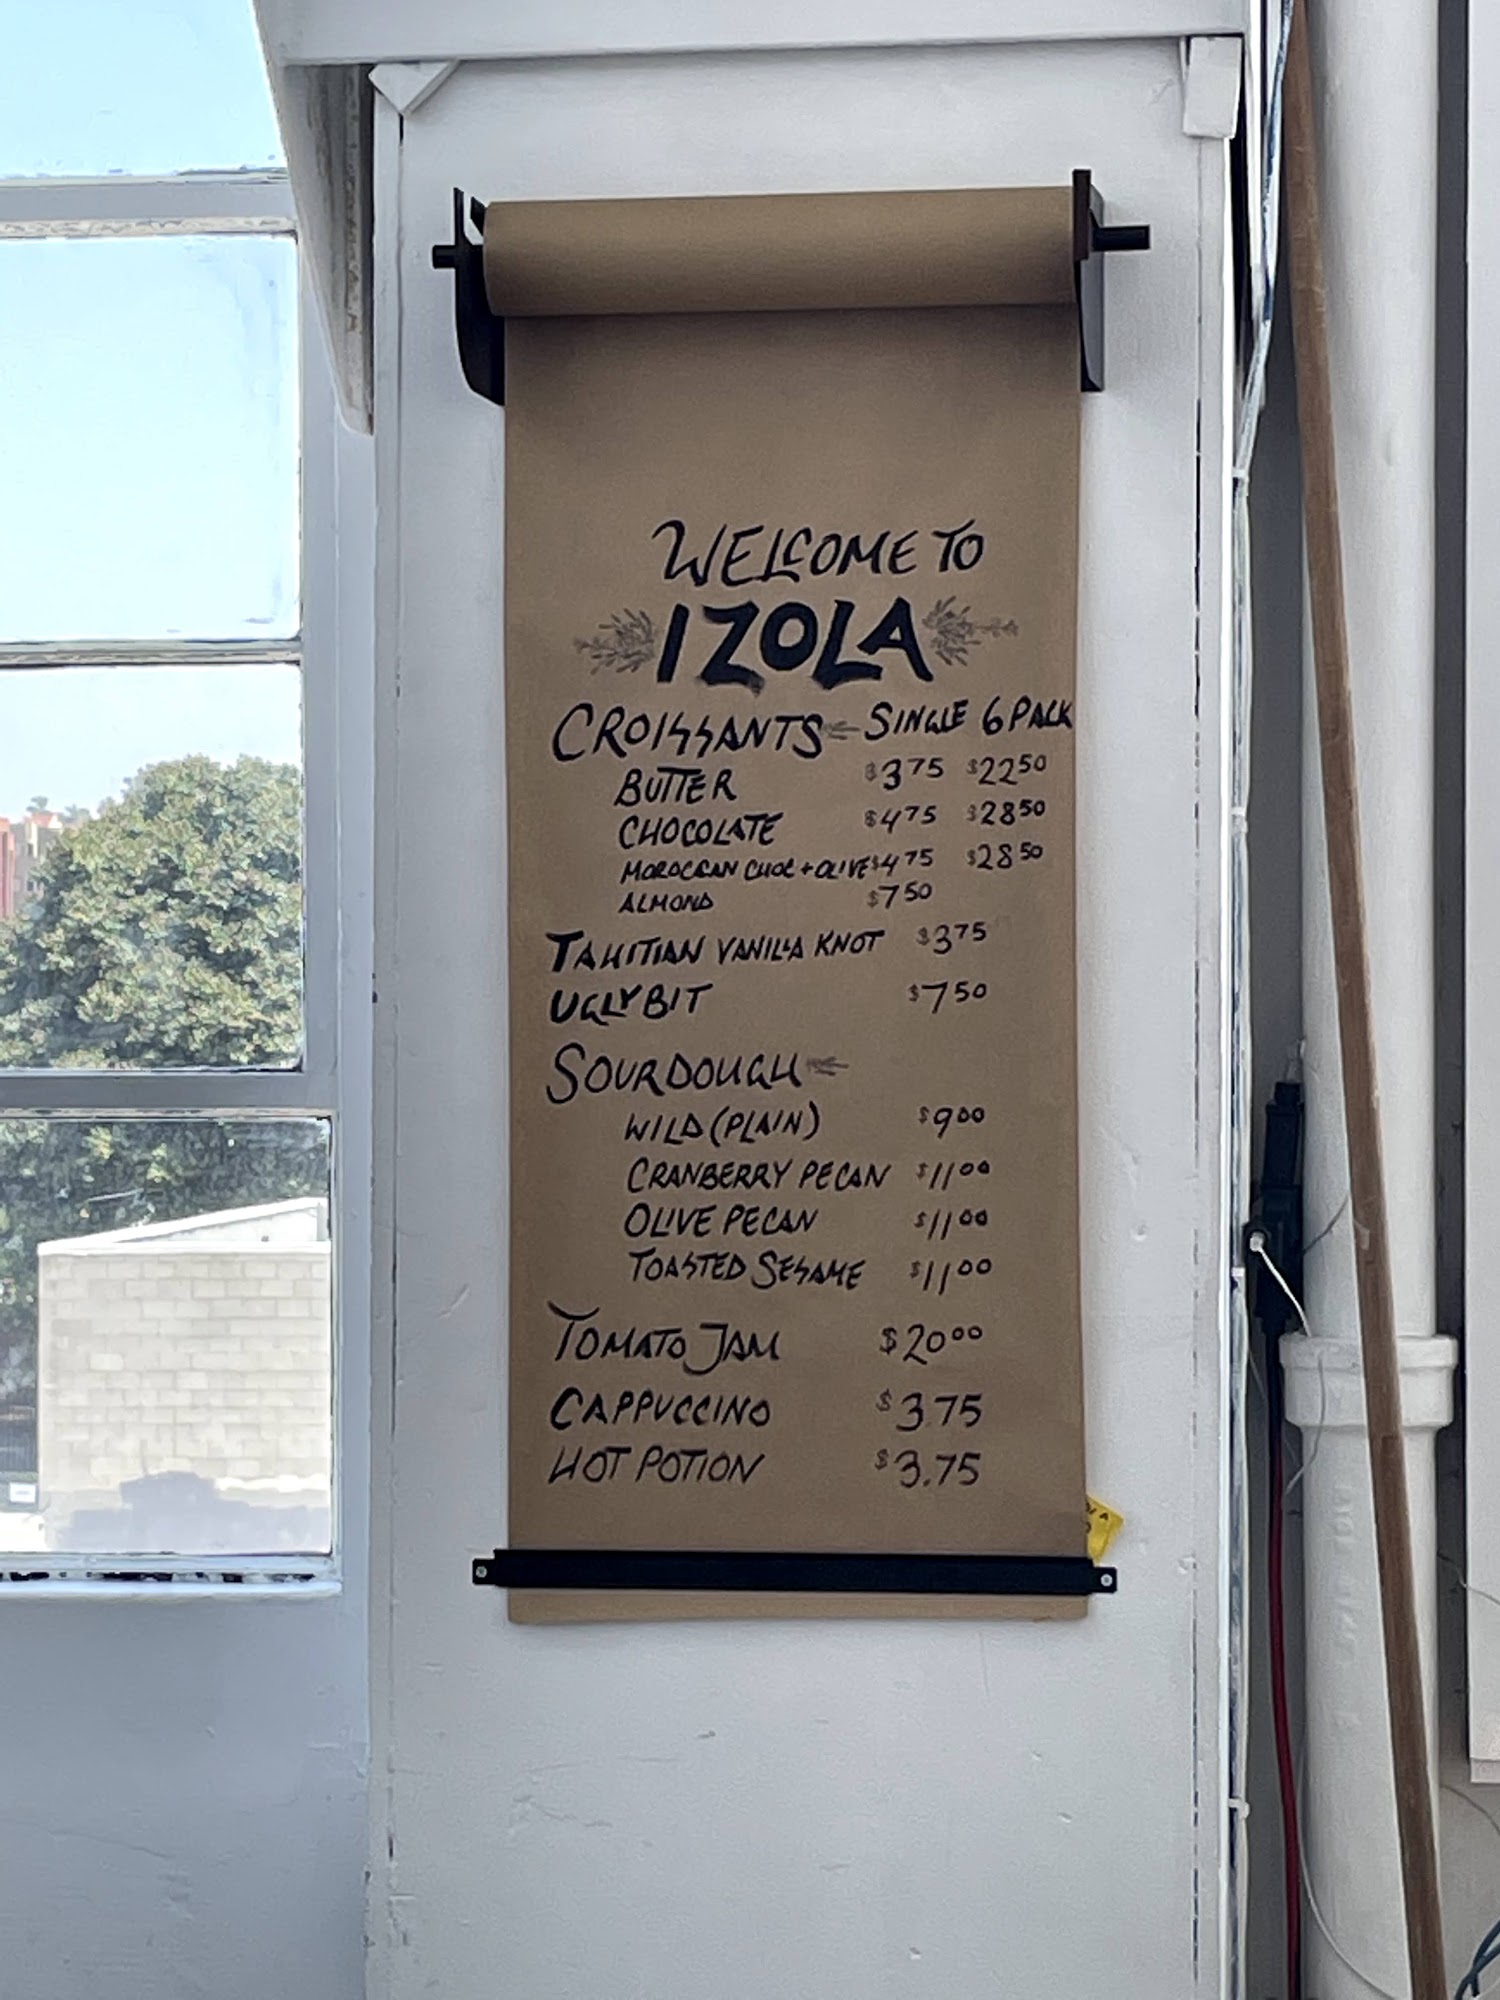 WELCOME TO
IZOLA
CROISSANTS SINGLE 6 PACK
BUTTER $3.75 $22.50
CHOCOLATE $4.75 $28.50
MOROCCAN CHOC + OLIVE $4.75 $28.50
ALMOND $7.50
TAHITIAN VANILLA KNOT $3.75
UGLY BIT $7.50
SOURDOUGH
WILD (PLAIN) $9.00
CRANBERRY PECAN $11.00
OLIVE PECAN $11.00
TOASTED SESAME $11.00
TOMATO JAM $20.00
CAPPUCCINO $3.75
HOT POTION $3.75